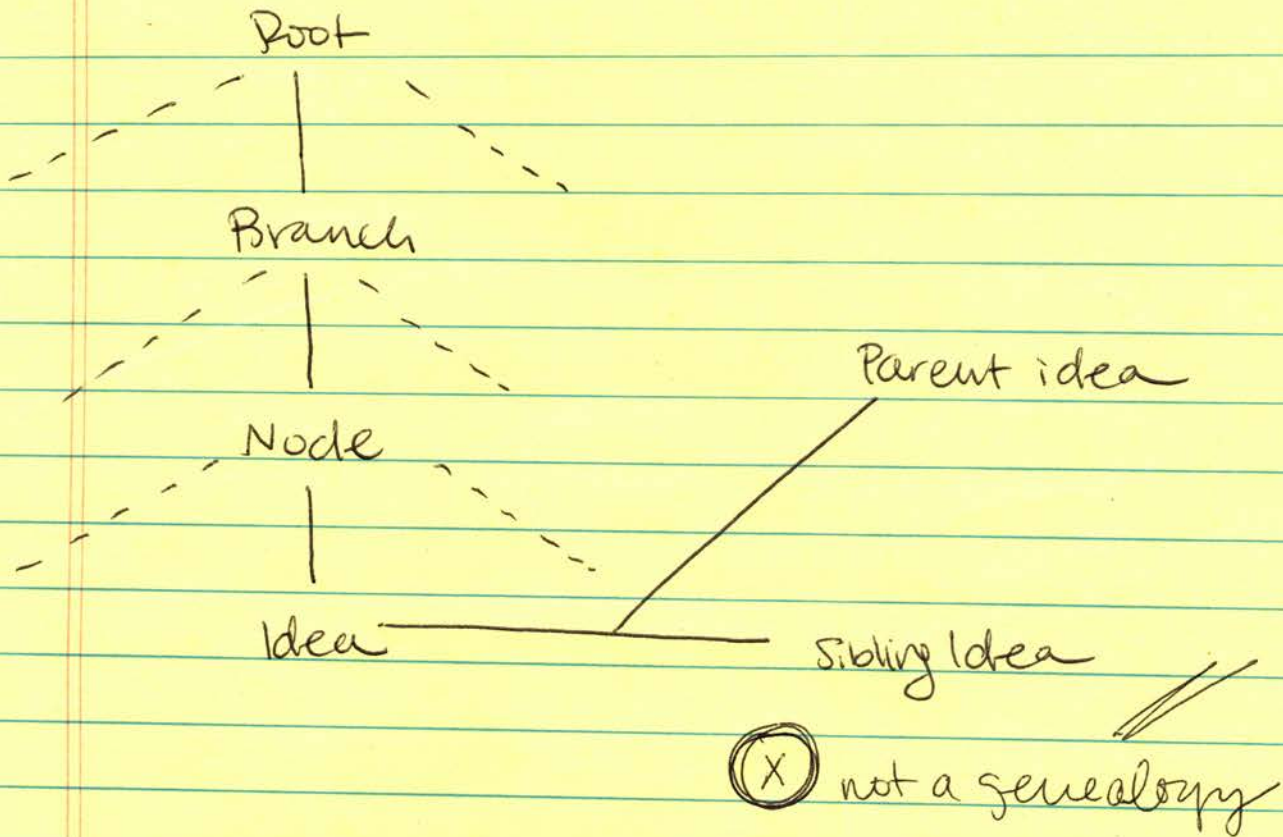 Root
Branch
Parent idea
Node
Idea
Sibling Idea
X not a genealogy